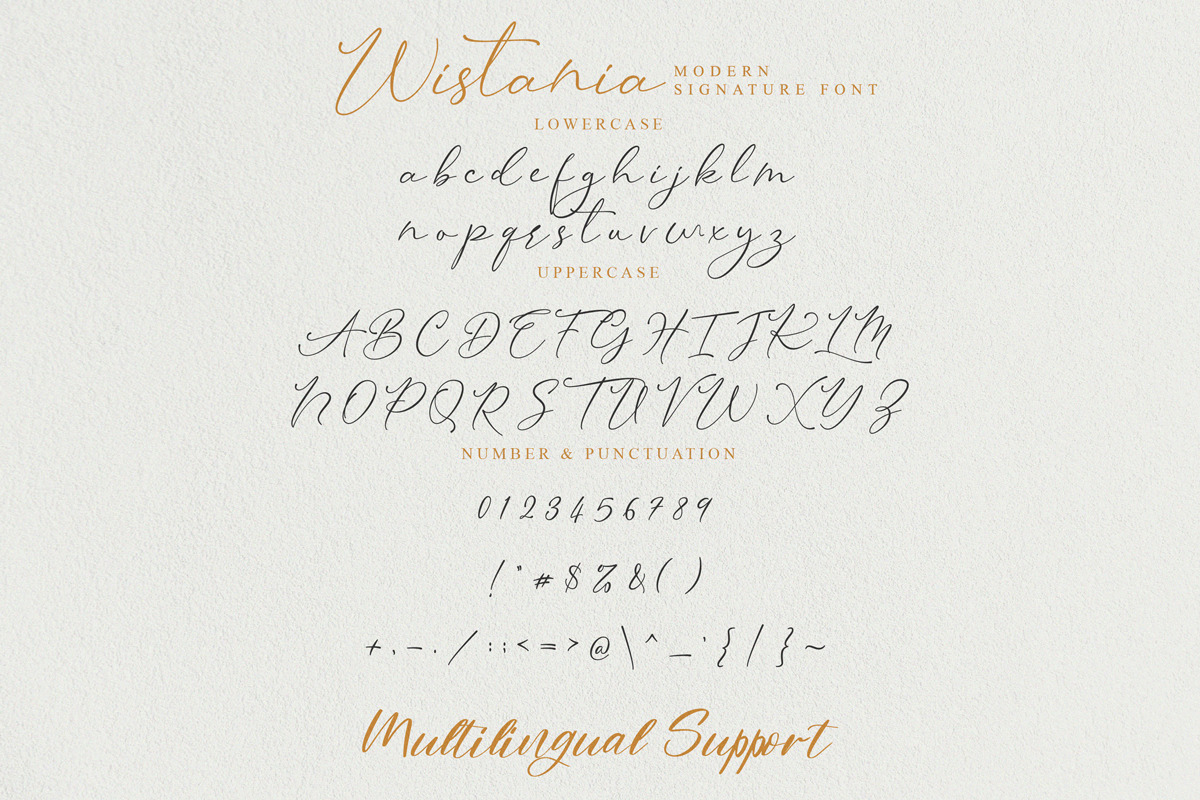 Wistania
MODERN
SIGNATURE FONT
LOWERCASE
a b c d e f g h i j k l m
n o p q r s t u v w x y z
UPPERCASE
A B C D E F G H I J K L M
N O P Q R S T U V W X Y Z
NUMBER & PUNCTUATION
0 1 2 3 4 5 6 7 8 9
! " # $ % & ( )
+ , - . / : ; < = > @ \ ^ _ ` { | } ~
Multilingual Support